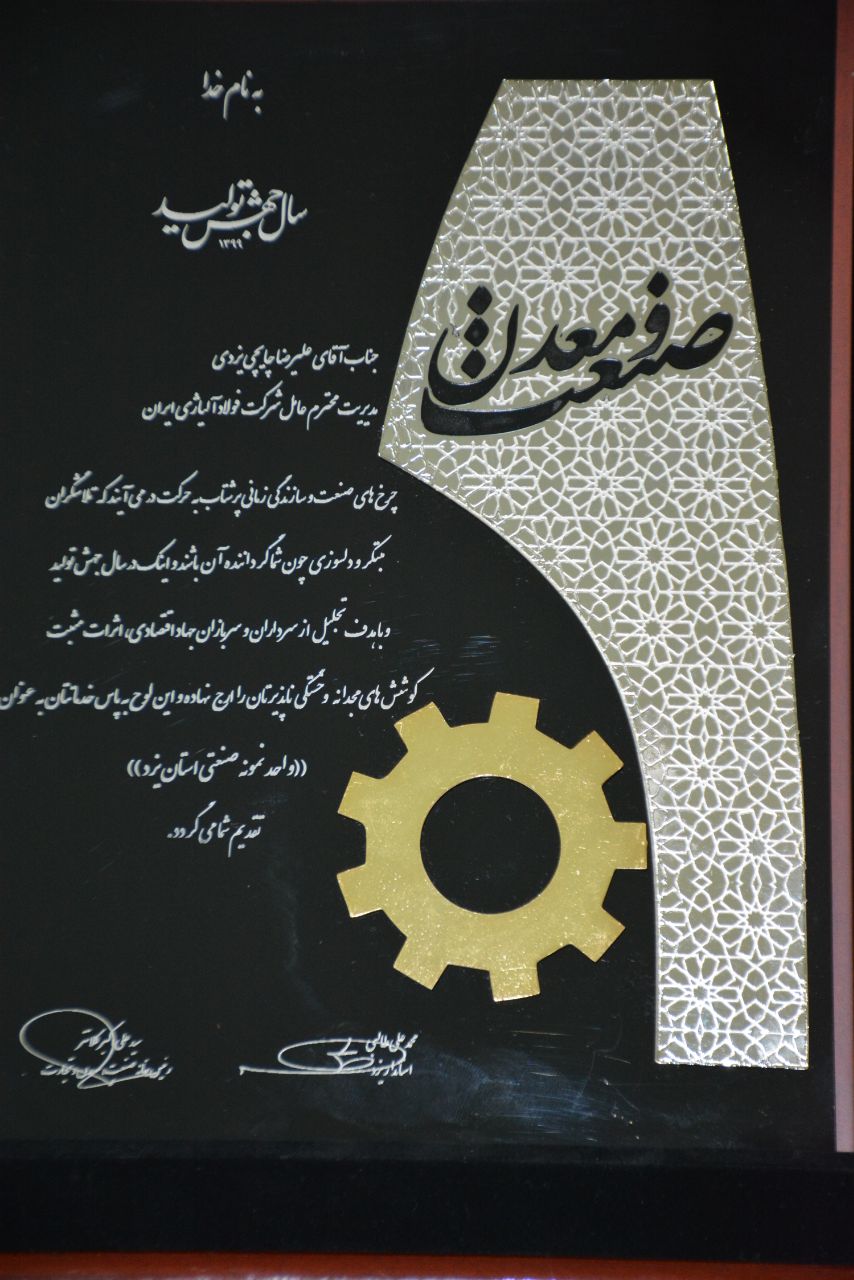 به نام خدا
سال جهش تولید
۱۳۹۹
صنعت و معدن
جناب آقای علیرضا چایچی یزدی
مدیریت محترم عامل شرکت فولاد آلیاژی ایران
چرخ های صنعت و سازندگی زمانی پرشتاب به حرکت در می آیند که تلاشگران
مبتکر و دلسوزی چون شما گرداننده آن باشند و اینک در سال جهش تولید
و با هدف تجلیل از سرداران و سربازان جهاد اقتصادی، اثرات مثبت
کوشش های مجدانه و خستگی ناپذیرتان را ارج نهاده و این لوح به پاس خدماتتان به عنوان
((واحد نمونه صنعتی استان یزد))
تقدیم شما می گردد.
محمد علی طالبی
استاندار یزد
سید علی اکبر کلانتر
رئیس سازمان صنعت، معدن و تجارت